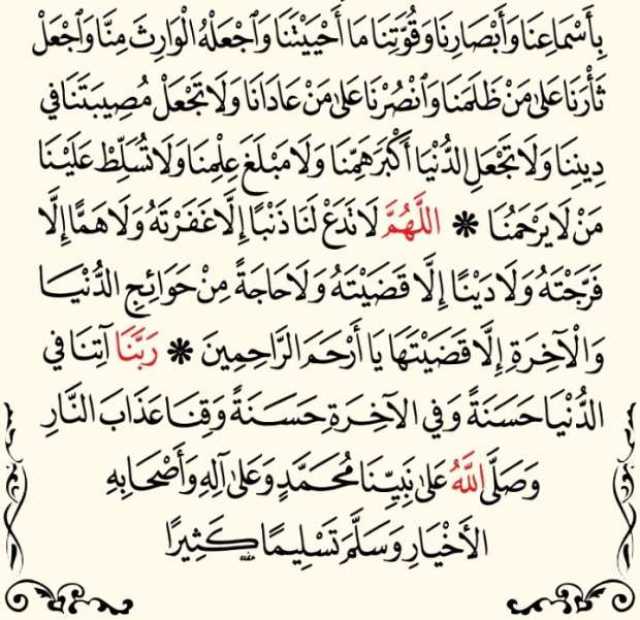 بِأَسْمَاعِنَا وَأَبْصَارِنَا وَقُوَّتِنَا مَا أَحْيَيْتَنَا وَٱجْعَلْهُ الْوَارِثَ مِنَّا وَٱجْعَلْ
ثَأْرَنَا عَلَىٰ مَنْ ظَلَمَنَا وَٱنْصُرْنَا عَلَىٰ مَنْ عَادَانَا وَلَا تَجْعَلْ مُصِيبَتَنَا فِي
دِينِنَا وَلَا تَجْعَلِ الدُّنْيَا أَكْبَرَ هَمِّنَا وَلَا مَبْلَغَ عِلْمِنَا وَلَا تُسَلِّطْ عَلَيْنَا
مَنْ لَا يَرْحَمُنَا * اللَّهُمَّ لَا تَدَعْ لَنَا ذَنْبًا إِلَّا غَفَرْتَهُ وَلَا هَمًّا إِلَّا
فَرَّجْتَهُ وَلَا دَيْنًا إِلَّا قَضَيْتَهُ وَلَا حَاجَةً مِنْ حَوَائِجِ الدُّنْيَا
وَالْآخِرَةِ إِلَّا قَضَيْتَهَا يَا أَرْحَمَ الرَّاحِمِينَ * رَبَّنَا آتِنَا فِي
الدُّنْيَا حَسَنَةً وَفِي الآخِرَةِ حَسَنَةً وَقِنَا عَذَابَ النَّارِ
وَصَلَّى اللَّهُ عَلَىٰ نَبِيِّنَا مُحَمَّدٍ وَعَلَىٰ آلِهِ وَأَصْحَابِهِ
الأَخْيَارِ وَسَلَّمَ تَسْلِيمًا كَثِيرًا